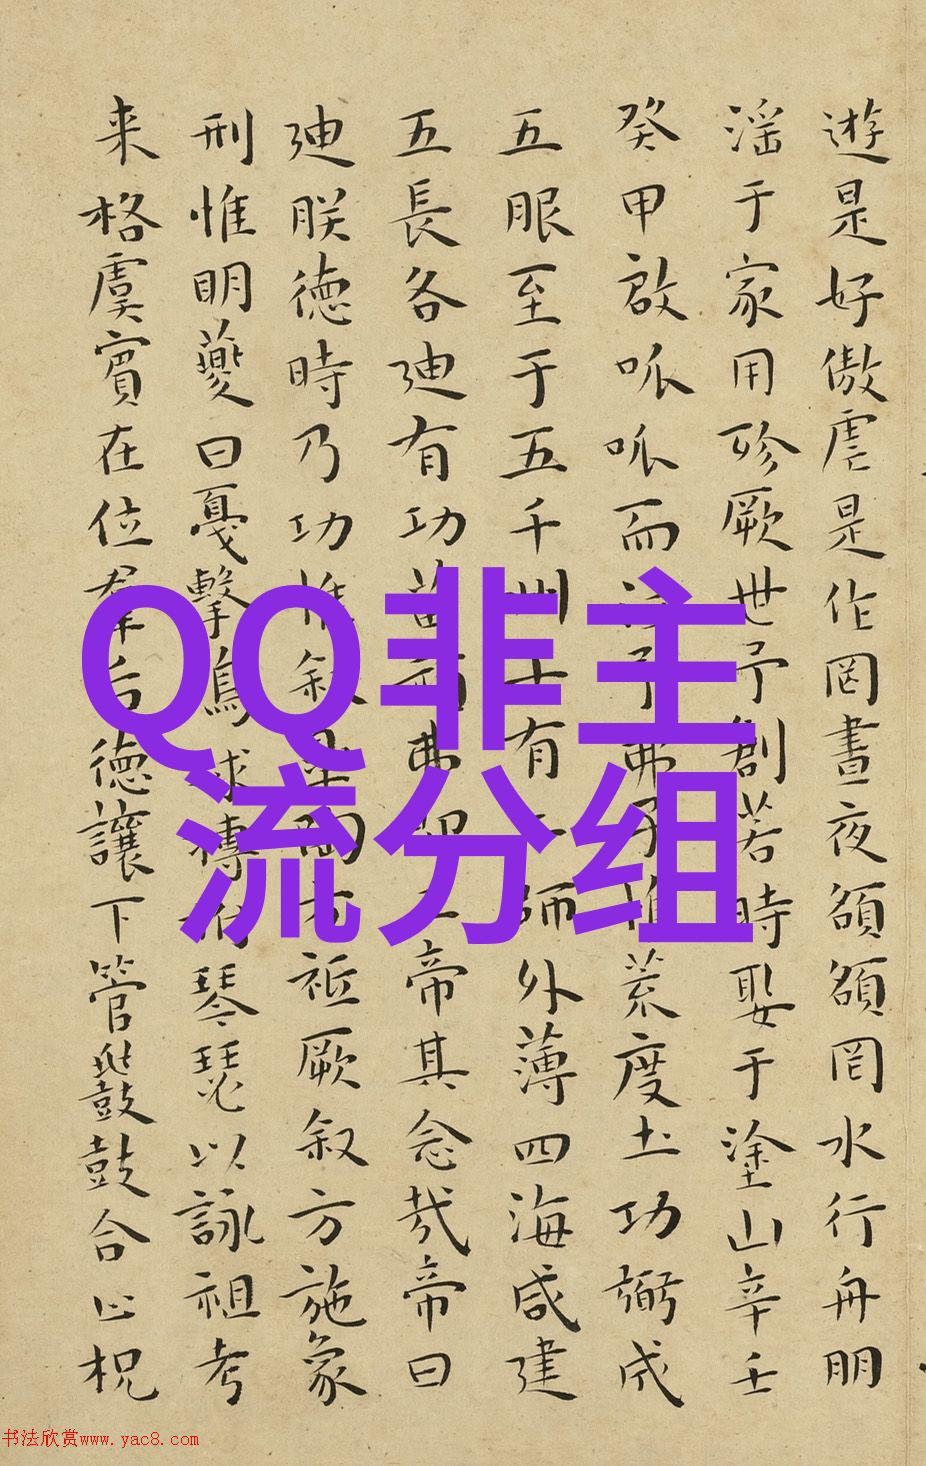 遊是好傲虐是作罔晝夜頟頟罔水行舟朋
淫于家用殄厥世予創若時娶于塗山辛壬
癸甲啟呱呱而泣予弗子惟荒度土功弼成
五服至于五千州十有二師外薄四海咸建
五長各迪有功苗頑弗即工帝其念哉帝曰
迪朕德時乃功惟叙皐陶方祗厥叙方施象
刑惟明夔曰戛擊鳴球搏拊琴瑟以詠祖考
来格虞賓在位羣后德讓下管鼗鼓合止柷
QQ非主
流分组
书法欣赏www.yac8.com